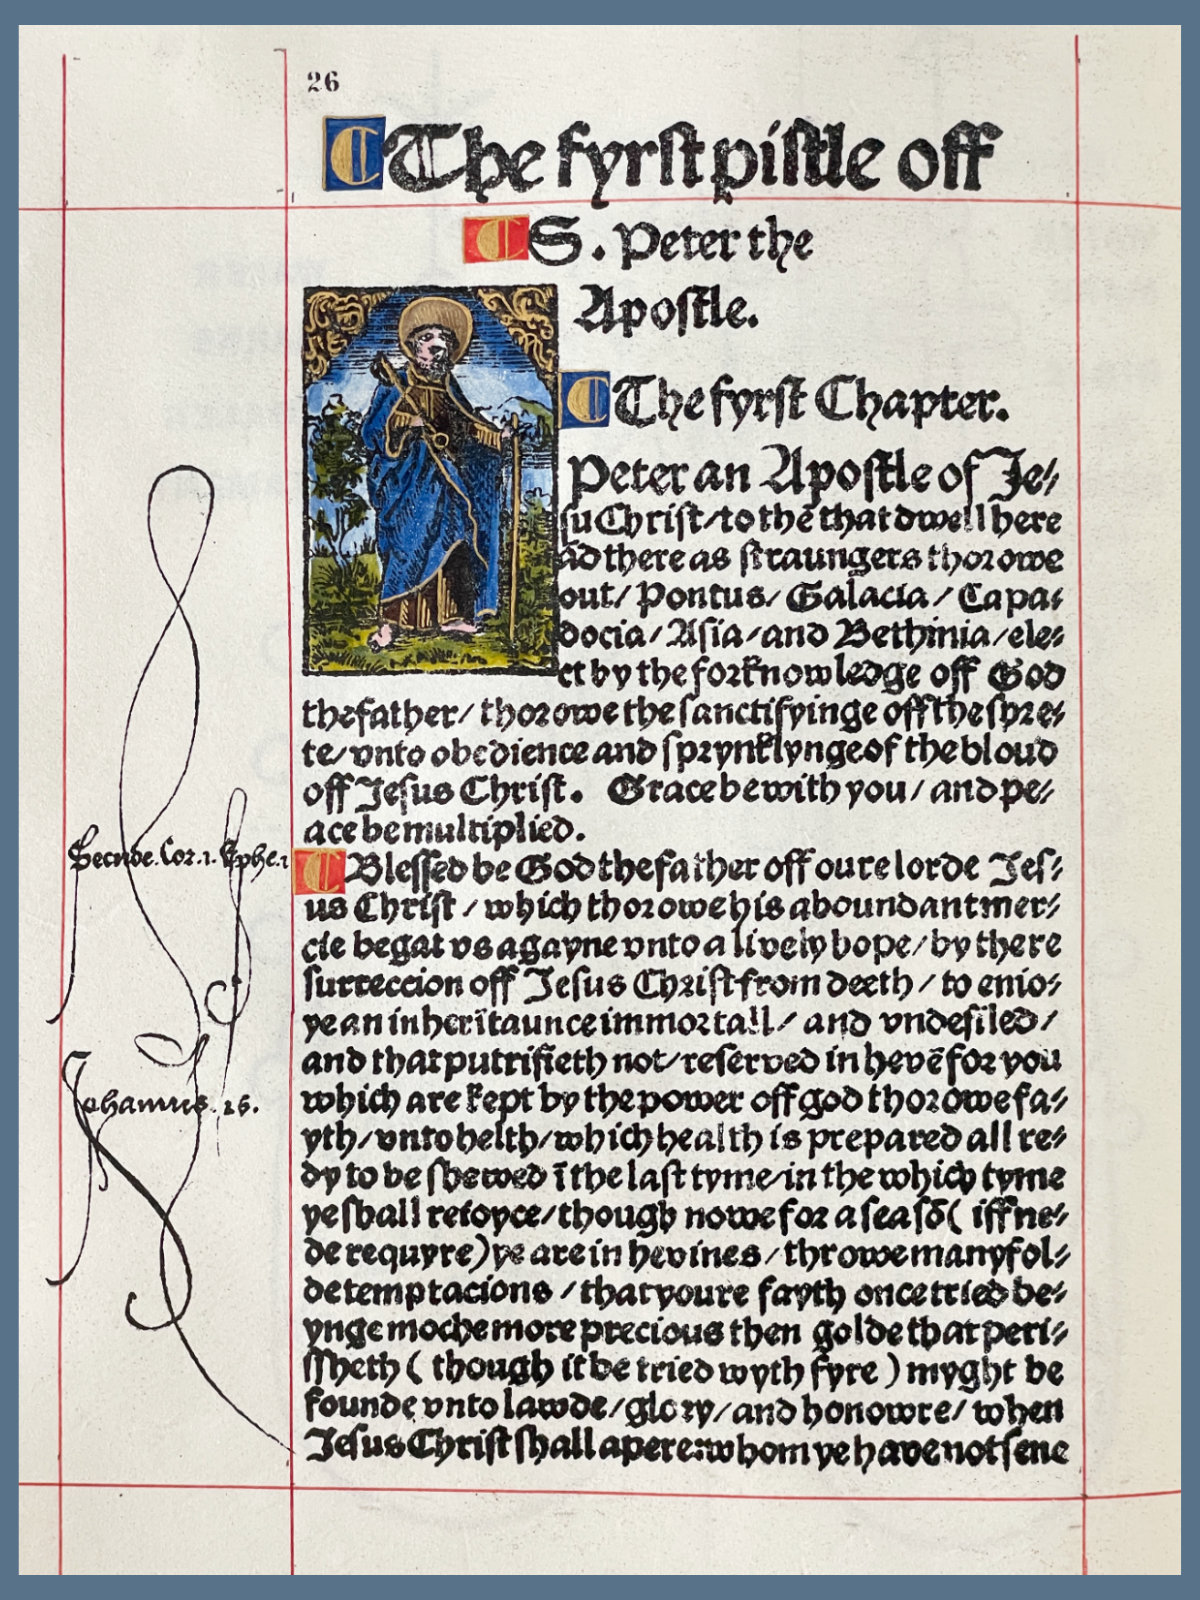 26
The fyrst pistle off
S. Peter the
Apostle.
The fyrst Chapter.
Peter an Apostle of Je⸗
su Christ/to thē that dwell here
ād there as straungers thorowe
out/ Pontus/ Galacia/ Capa⸗
docia/ Asia/and Bethinia/ele⸗
ct by the forknowledge off God
the father/ thorowe the sanctifyinge off the spre⸗
te/vnto obedience and sprynklynge of the bloud
off Jesus Christ. Grace be with you/ and pe⸗
ace be multiplied.
Blessed be God the father off oure lorde Jes⸗
us Christ / which thorowe his aboundant mer⸗
cie begat vs agayne vnto a lively hope/by there
surreccion off Jesus Christ from deeth / to enio⸗
ye an inheritaunce immortall/ and vndefiled/
and that putrifieth not/reserved in hevē for you
which are kept by the power off god thorowe fa⸗
yth/vnto helth/which health is prepared all re⸗
dy to be shewed ī the last tyme/in the which tyme
ye shall reioyce/though nowe for a seasō( iff ne⸗
de requyre)ye are in hevines/throwe manyfol⸗
de temptacions /that youre fayth once tried be⸗
ynge moche more precious then golde that peri⸗
ssheth( though it be tried wyth fyre ) myght be
founde vnto lawde/glory/and honowre/ when
Jesus Christ shall apere:whom ye have not sene
Secnde.Cor.1. Ephe.1
Johannis.16.